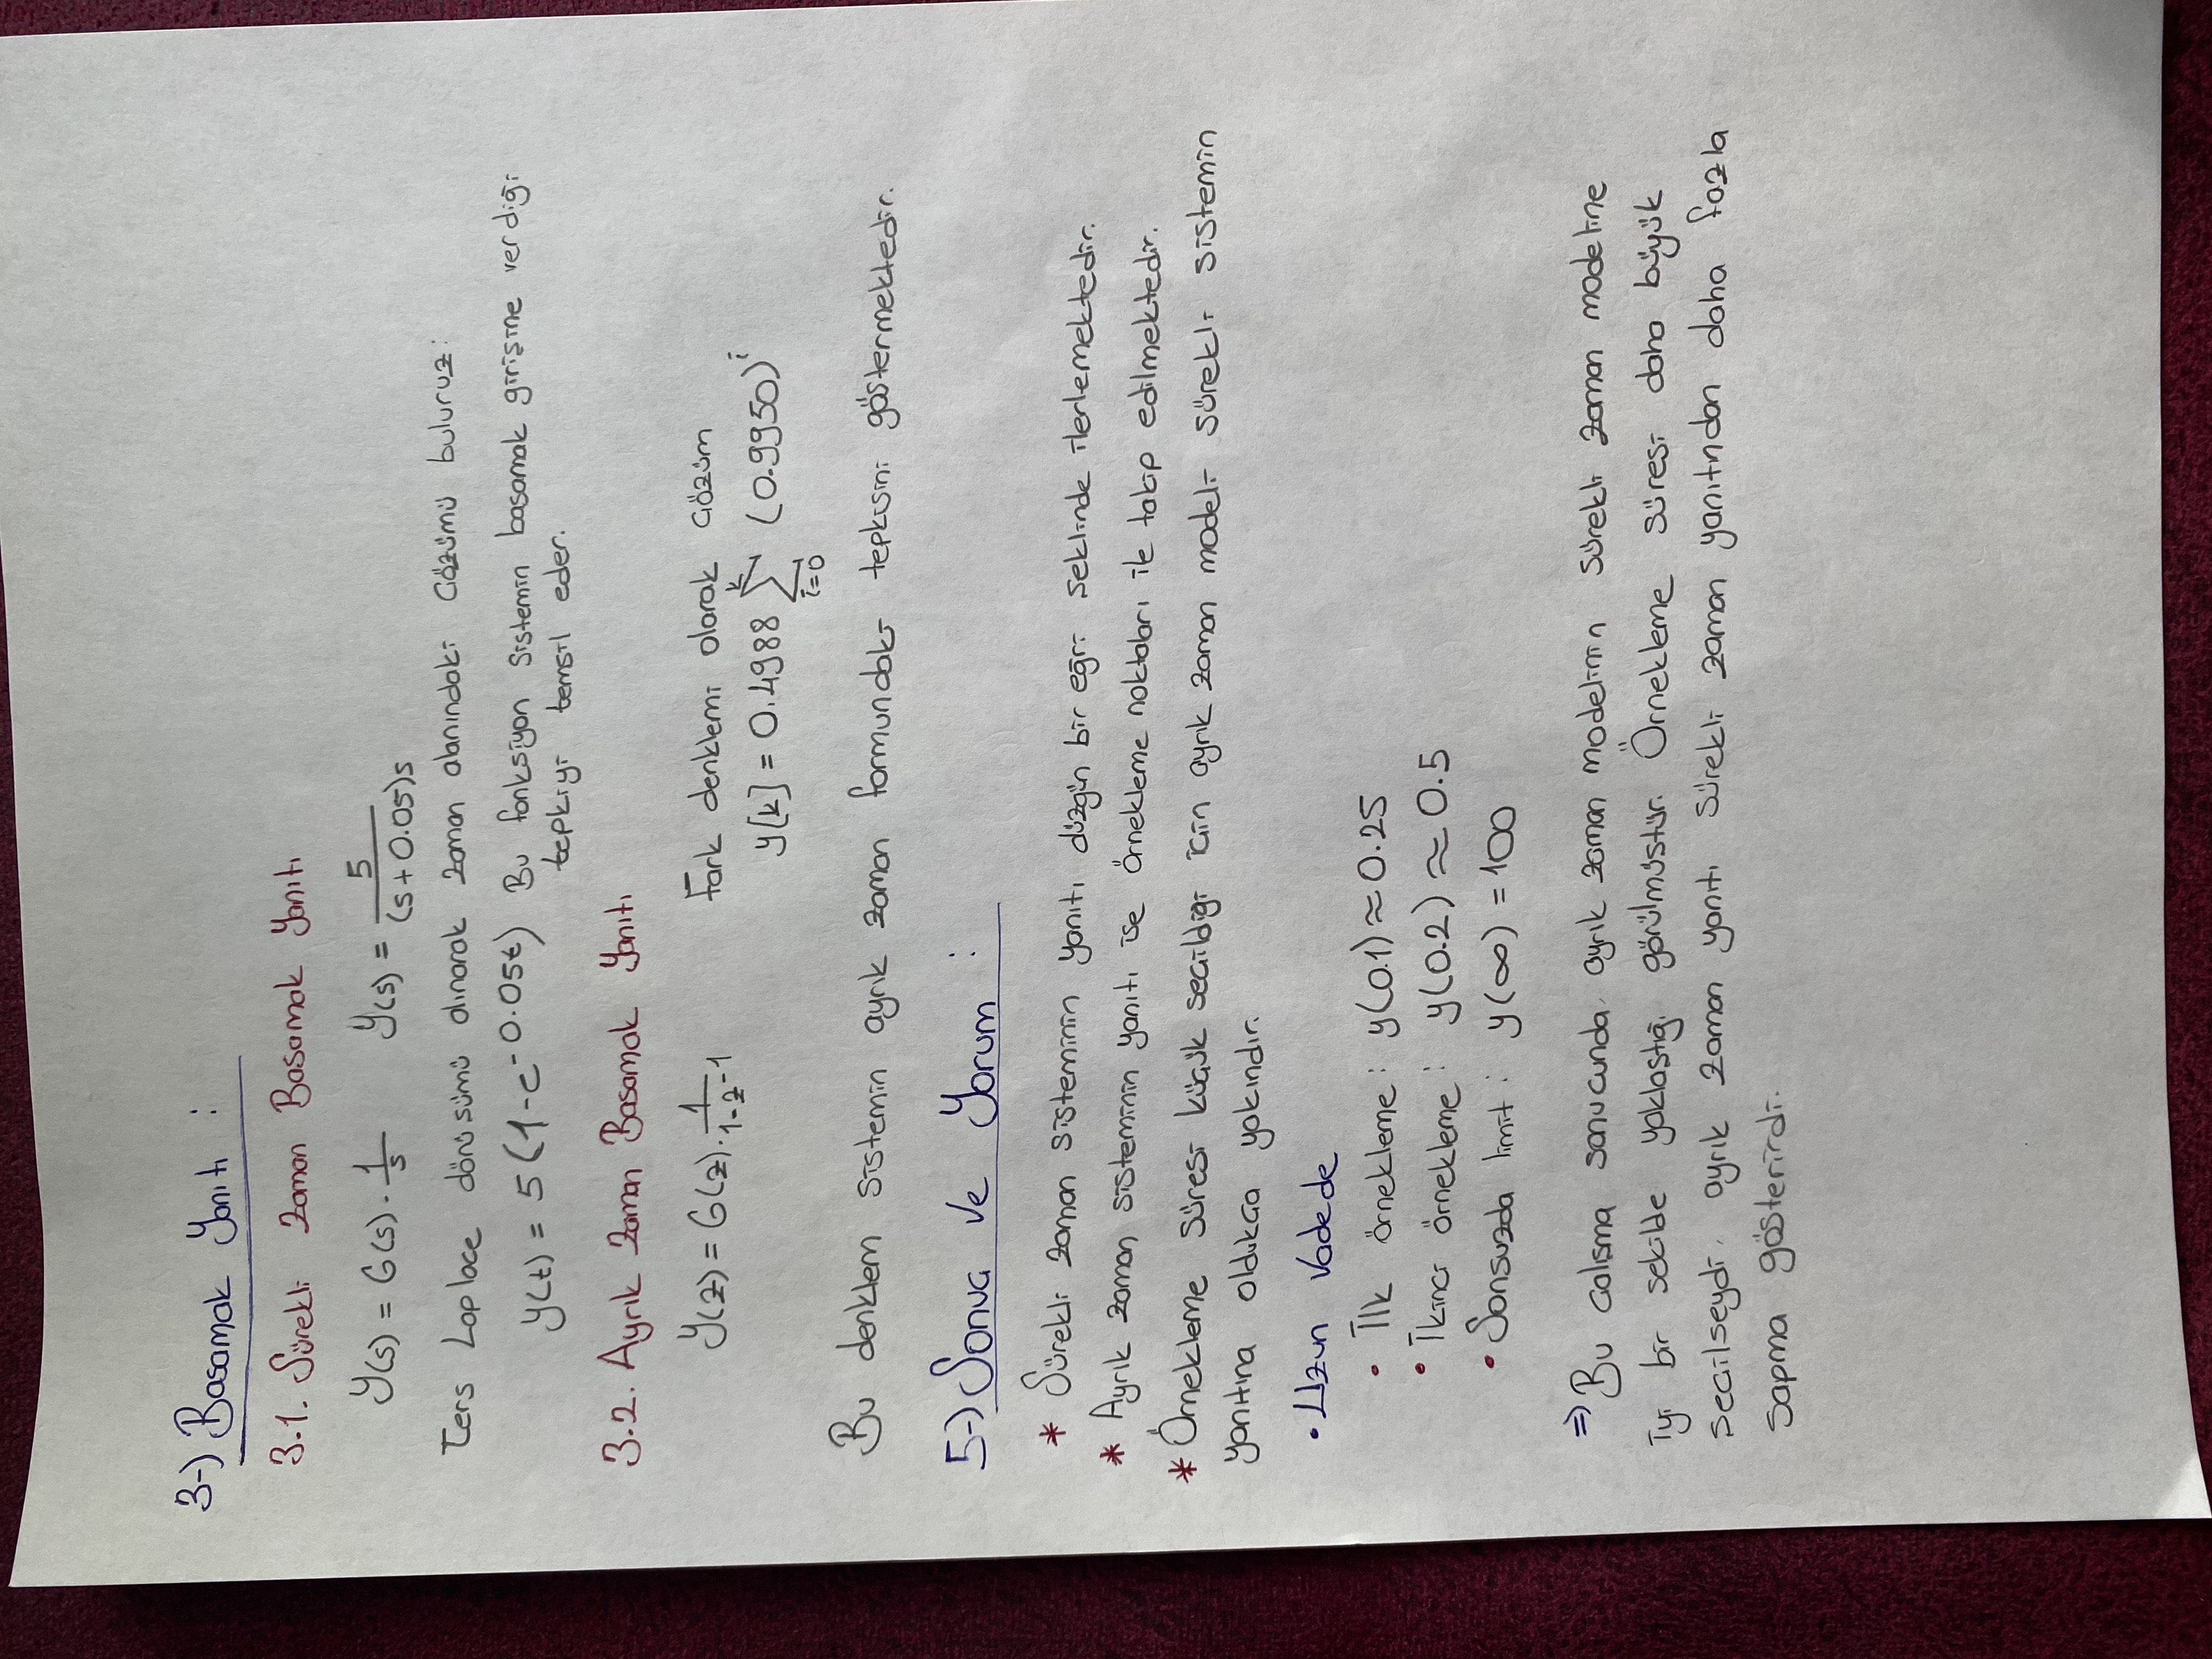 3-) Basamak Yanıtı :
3.1. Sürekli Zaman Basamak Yanıtı
Y(s) = G(s) · 1/s    Y(s) = 5/((s+0.05)s)
Ters Laplace dönüsümü alınarak zaman alanındaki Gözümü buluruz:
y(t) = 5(1-e^-0.05t) Bu fonksiyon sistemin basamak girişine verdiği
tepkiyi temsil eder.
3.2. Ayrık Zaman Basamak Yanıtı
Y(z) = G(z) · 1/(1-z^-1)    Fark denklemi olarak Gözüm
y[k] = 0.4988 ∑_{i=0}^{k} (0.9950)^i
Bu denklem sistemin ayrık zaman formundaki tepkisini göstermektedir.
5-) Sonuc Ve Yorum :
* Sürekli zaman sisteminin yanıtı düzgün bir eğri seklinde ilerlemektedir.
* Ayrık zaman sisteminin yanıtı ise örnekleme noktaları ile takip edilmektedir.
* Örnekleme süresi kücük secildiği icin ayrık zaman modeli sürekli sistemin
yanıtına oldukca yakındır.
• Uzun Vadede
• İlk örnekleme : y(0.1) ≈ 0.25
• İkinci örnekleme : y(0.2) ≈ 0.5
• Sonsuzda limit : y(∞) = 100
⇒ Bu calısma sonucunda, ayrık zaman modelinin sürekli zaman modeline
iyi bir sekilde yaklastığı görülmüstür. Örnekleme süresi daha büyük
secilseydi, ayrık zaman yanıtı sürekli zaman yanıtından daha fazla
sapma gösterirdi.